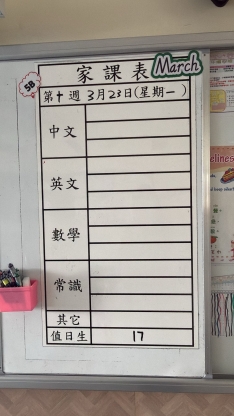 家課表
March
5B
第十週 3月23日(星期一)
中文
英文
數學
常識
其它
值日生 17